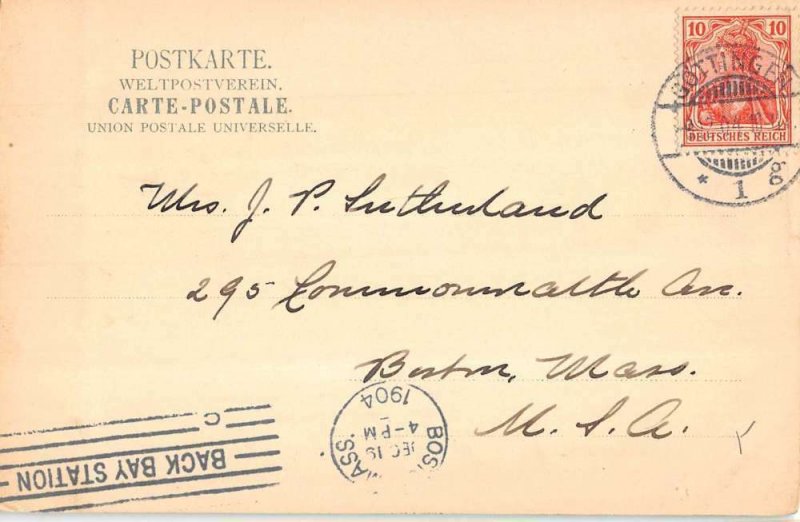 POSTKARTE.
WELTPOSTVEREIN.
CARTE-POSTALE.
UNION POSTALE UNIVERSELLE.
10 10
DEUTSCHES REICH
GÖTTINGEN
* 1 g
Mrs. J. P. Sutherland
295 Commonwealth Av.
Boston, Mass.
U. S. A.
BOS
MASS.
DEC 19
4-PM
1904
BACK BAY STATION
C